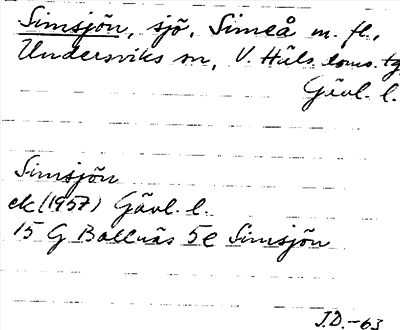 Simsjön, sjö, Simeå m. fl.,
Undersviks sn, V. Häls. doms. tg,
Gävl. l.
Simsjön
ek (1957) Gävl. l.
15 G Bollnäs 5e Simsjön
J.D.-63